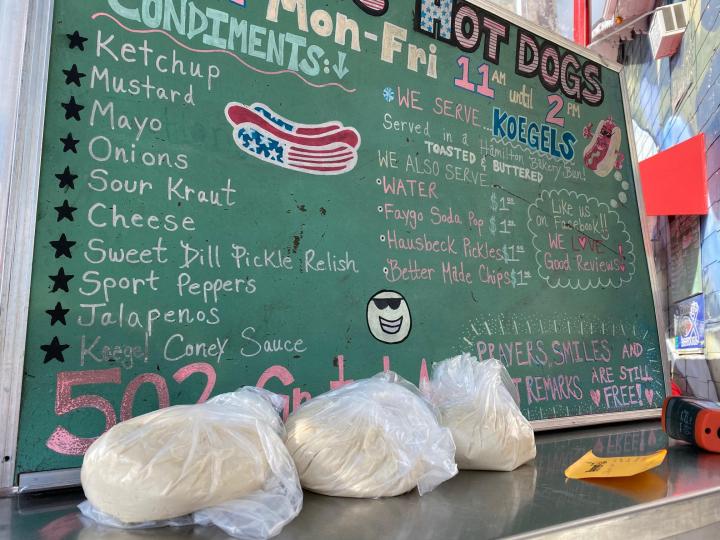 HOT DOGS
Mon-Fri 11 AM until 2 PM
CONDIMENTS:
Ketchup
Mustard
Mayo
Onions
Sour Kraut
Cheese
Sweet Dill Pickle Relish
Sport Peppers
Jalapenos
Koegel Coney Sauce
WE SERVE...
KOEGELS
Served in a Hamilton Bakery Bun!
TOASTED & BUTTERED
WE ALSO SERVE...
WATER $1.00
Faygo Soda Pop $1.00
Hausbeck Pickles $1.00
Better Made Chips $1.00
Like us
on Facebook!!
WE LOVE
Good Reviews!
502
PRAYERS, SMILES AND
REMARKS ARE STILL
FREE!